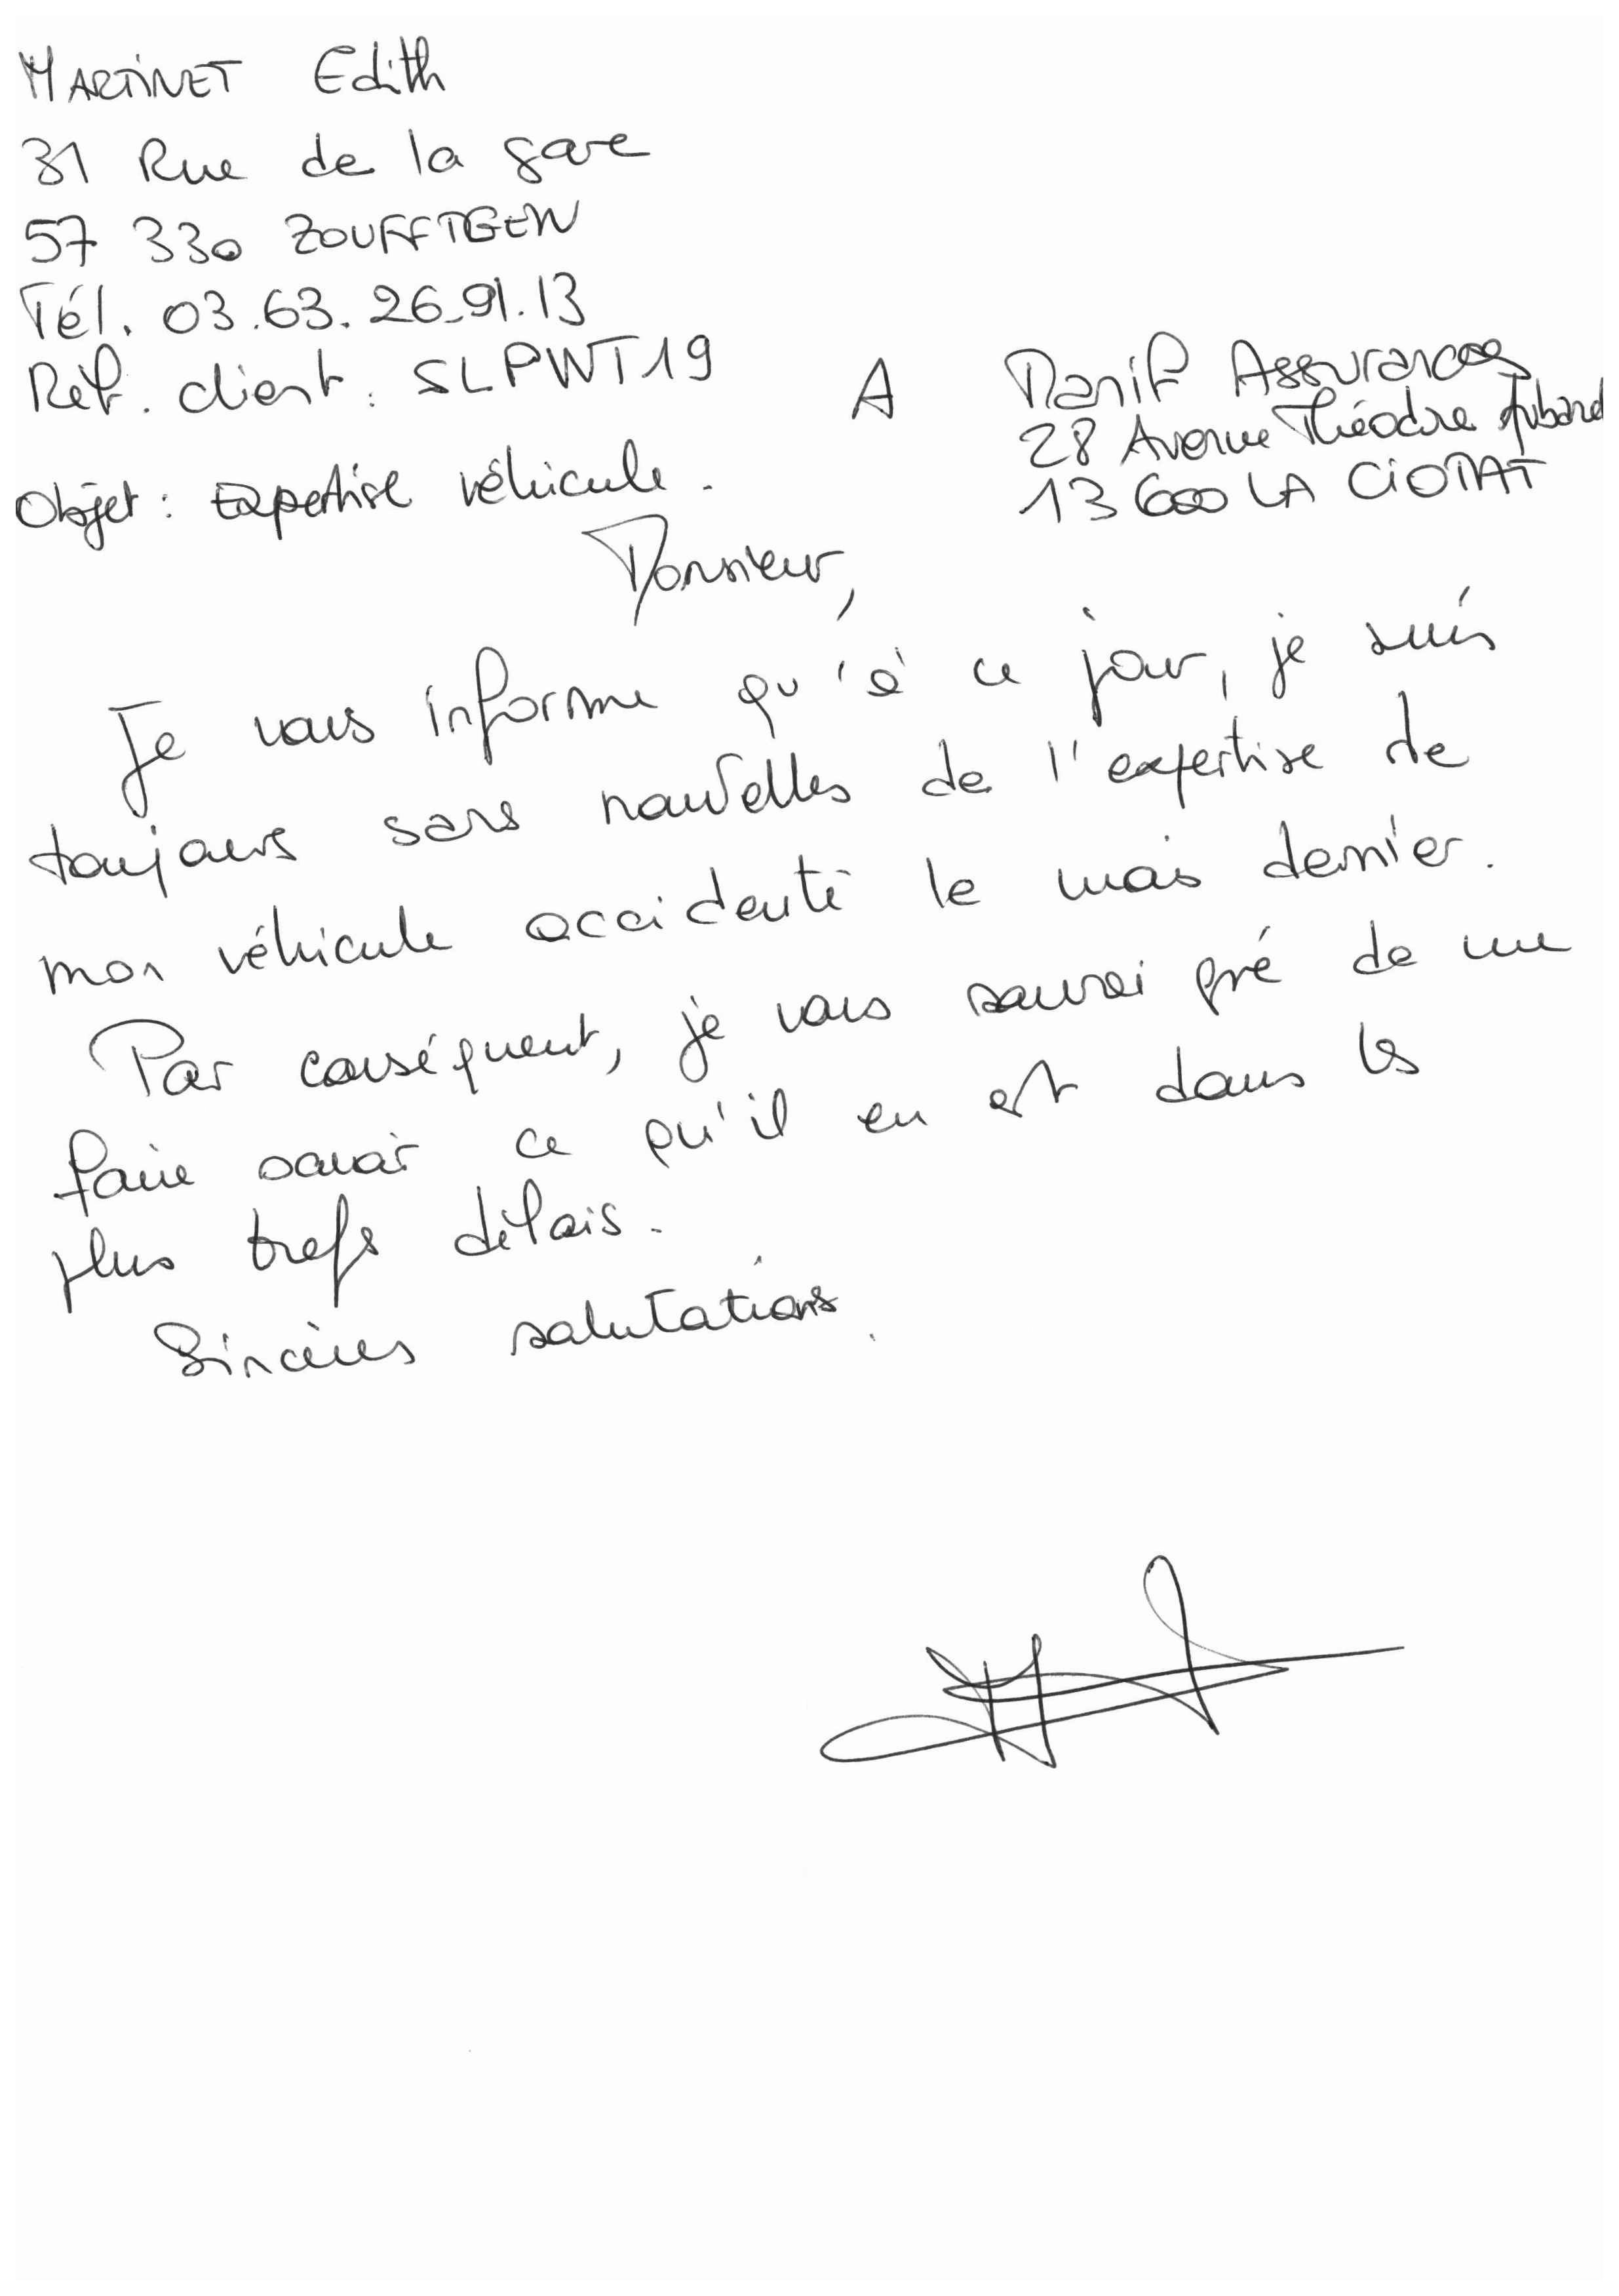 MARTINET Edith
31 Rue de la gare
57 330 ZOUFFTGEN
Tél. 03.63.26.91.13
Réf. client : SLPWT19
A Manif Assurances
28 Avenue Théodore Aubanel
13 600 LA CIOTAT
Objet : Expertise véhicule.
Monsieur,
Je vous informe qu'à ce jour, je suis
toujours sans nouvelles de l'expertise de
mon véhicule accidenté le mois dernier.
Par conséquent, je vous saurai gré de me
faire savoir ce qu'il en est dans les
plus brefs délais.
Sincères salutations.